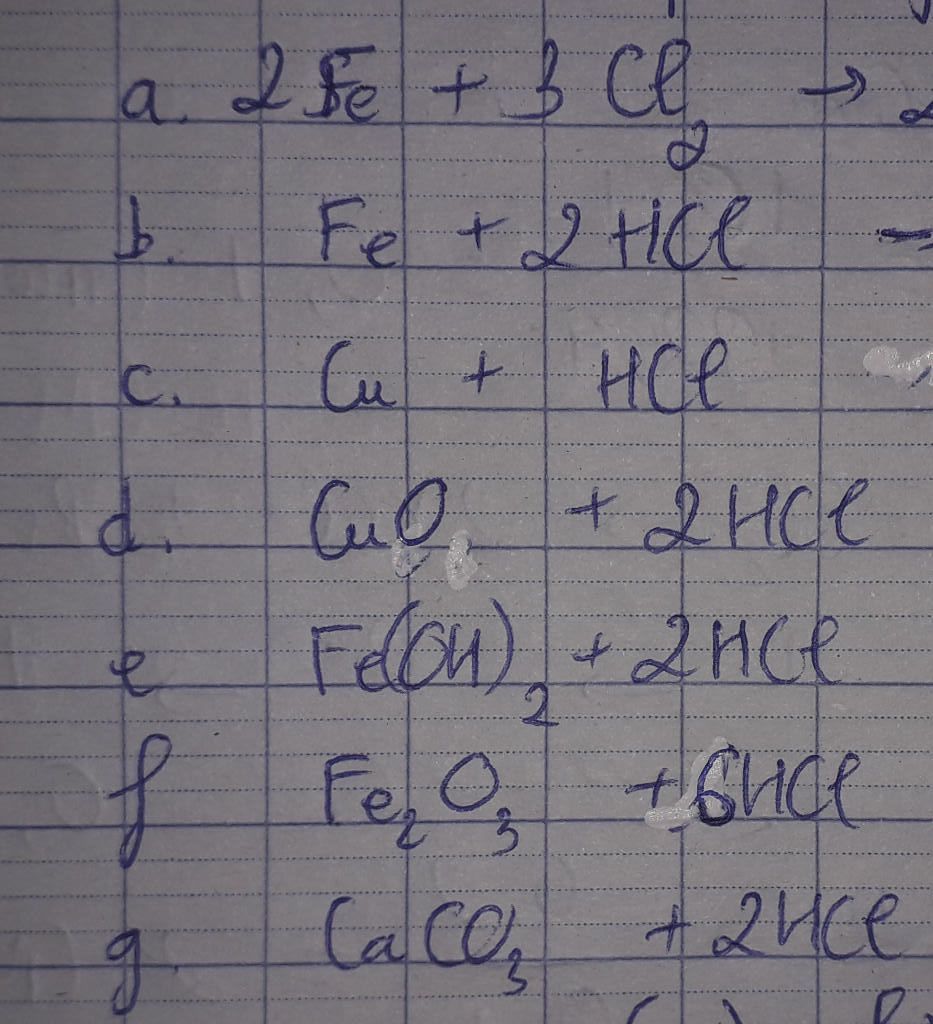 a. 2Fe + 3Cl₂ → 2
b. Fe + 2HCl →
c. Cu + HCl
d. CuO + 2HCl
e Fe(OH)₂ + 2HCl
f Fe₂O₃ + 6HCl
g. CaCO₃ + 2HCl